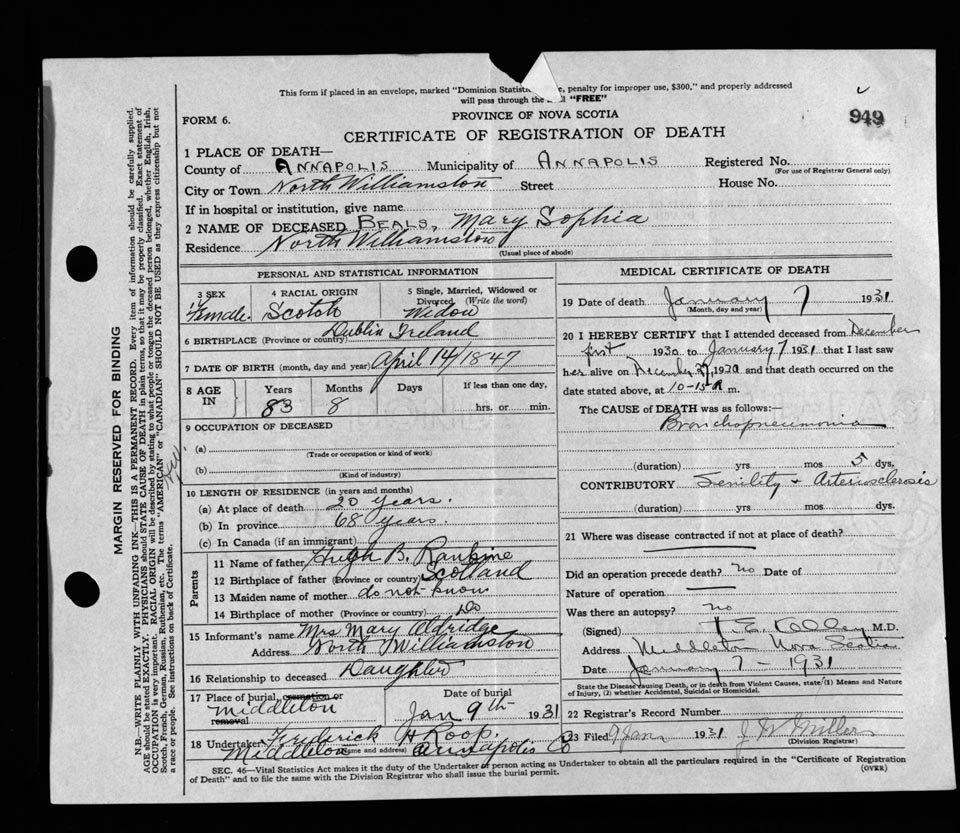 This form if placed in an envelope, marked "Dominion Statistics penalty for improper use, $300," and properly addressed
will pass through the "FREE"
949
PROVINCE OF NOVA SCOTIA
FORM 6.
CERTIFICATE OF REGISTRATION OF DEATH
1 PLACE OF DEATH—
County of ANNAPOLIS Municipality of ANNAPOLIS Registered No.
(For use of Registrar General only)
City or Town North Williamston Street House No.
If in hospital or institution, give name
2 NAME OF DECEASED BEALS, Mary Sophia
Residence North Williamston
(Usual place of abode)
PERSONAL AND STATISTICAL INFORMATION
3 SEX 4 RACIAL ORIGIN 5 Single, Married, Widowed or Divorced (Write the word)
Female. Scotch Widow
6 BIRTHPLACE (Province or country) Dublin Ireland
7 DATE OF BIRTH (month, day and year) April 14/1847
8 AGE IN Years Months Days If less than one day,
83 8 hrs. or min.
9 OCCUPATION OF DECEASED
(a)
(Trade or occupation or kind of work)
(b)
(Kind of industry)
10 LENGTH OF RESIDENCE (in years and months)
(a) At place of death 20 years.
(b) In province 68 years.
(c) In Canada (if an immigrant)
Parents
11 Name of father Hugh B. Rankine
12 Birthplace of father (Province or country) Scotland
13 Maiden name of mother do not know
14 Birthplace of mother (Province or country) do
15 Informant's name Mrs Mary Aldridge
Address North Williamston
16 Relationship to deceased Daughter
17 Place of burial, cremation or removal Date of burial
Middleton Jan 9th 1931
18 Undertaker Frederick H Roop.
(Name and address) Middleton Annapolis Co
MEDICAL CERTIFICATE OF DEATH
19 Date of death January 7 1931
(Month, day and year)
20 I HEREBY CERTIFY that I attended deceased from December
first 1930 to January 7 1931 that I last saw
her alive on December 1930 and that death occurred on the
date stated above, at 10-15 A m.
The CAUSE of DEATH was as follows:—
Bronchopneumonia
(duration) yrs mos 5 dys,
CONTRIBUTORY Senility + Arteriosclerosis
(duration) yrs. mos dys.
21 Where was disease contracted if not at place of death?
Did an operation precede death? no Date of
Nature of operation
Was there an autopsy? no
(Signed) M.D.
Address Middleton Nova Scotia
Date January 7 - 1931
State the Disease causing Death, or in death from Violent Causes, state (1) Means and
Nature of Injury, (2) whether Accidental, Suicidal or Homicidal.
22 Registrar's Record Number
23 Filed 9 Jan 1931 J W Miller
(Division Registrar)
SEC. 46—Vital Statistics Act makes it the duty of the Undertaker or person acting as Undertaker to obtain all the particulars required in the "Certificate of Registration
of Death" and to file the same with the Division Registrar who shall issue the burial permit.
(OVER)
MARGIN RESERVED FOR BINDING
N.B.—WRITE PLAINLY WITH UNFADING INK—THIS IS A PERMANENT RECORD. Every item of information should be carefully supplied.
AGE should be stated EXACTLY. PHYSICIANS should STATE CAUSE OF DEATH in plain terms, so that it may be properly classified. Exact statement of
OCCUPATION is very important. RACIAL ORIGIN will be described by stating to what people or tongue the deceased person belonged, whether English, Irish,
Scotch, French, German, Russian, Ruthenian, etc. The terms "AMERICAN" or "CANADIAN" SHOULD NOT BE USED as they express citizenship but not
a race or people. See instructions on back of Certificate.